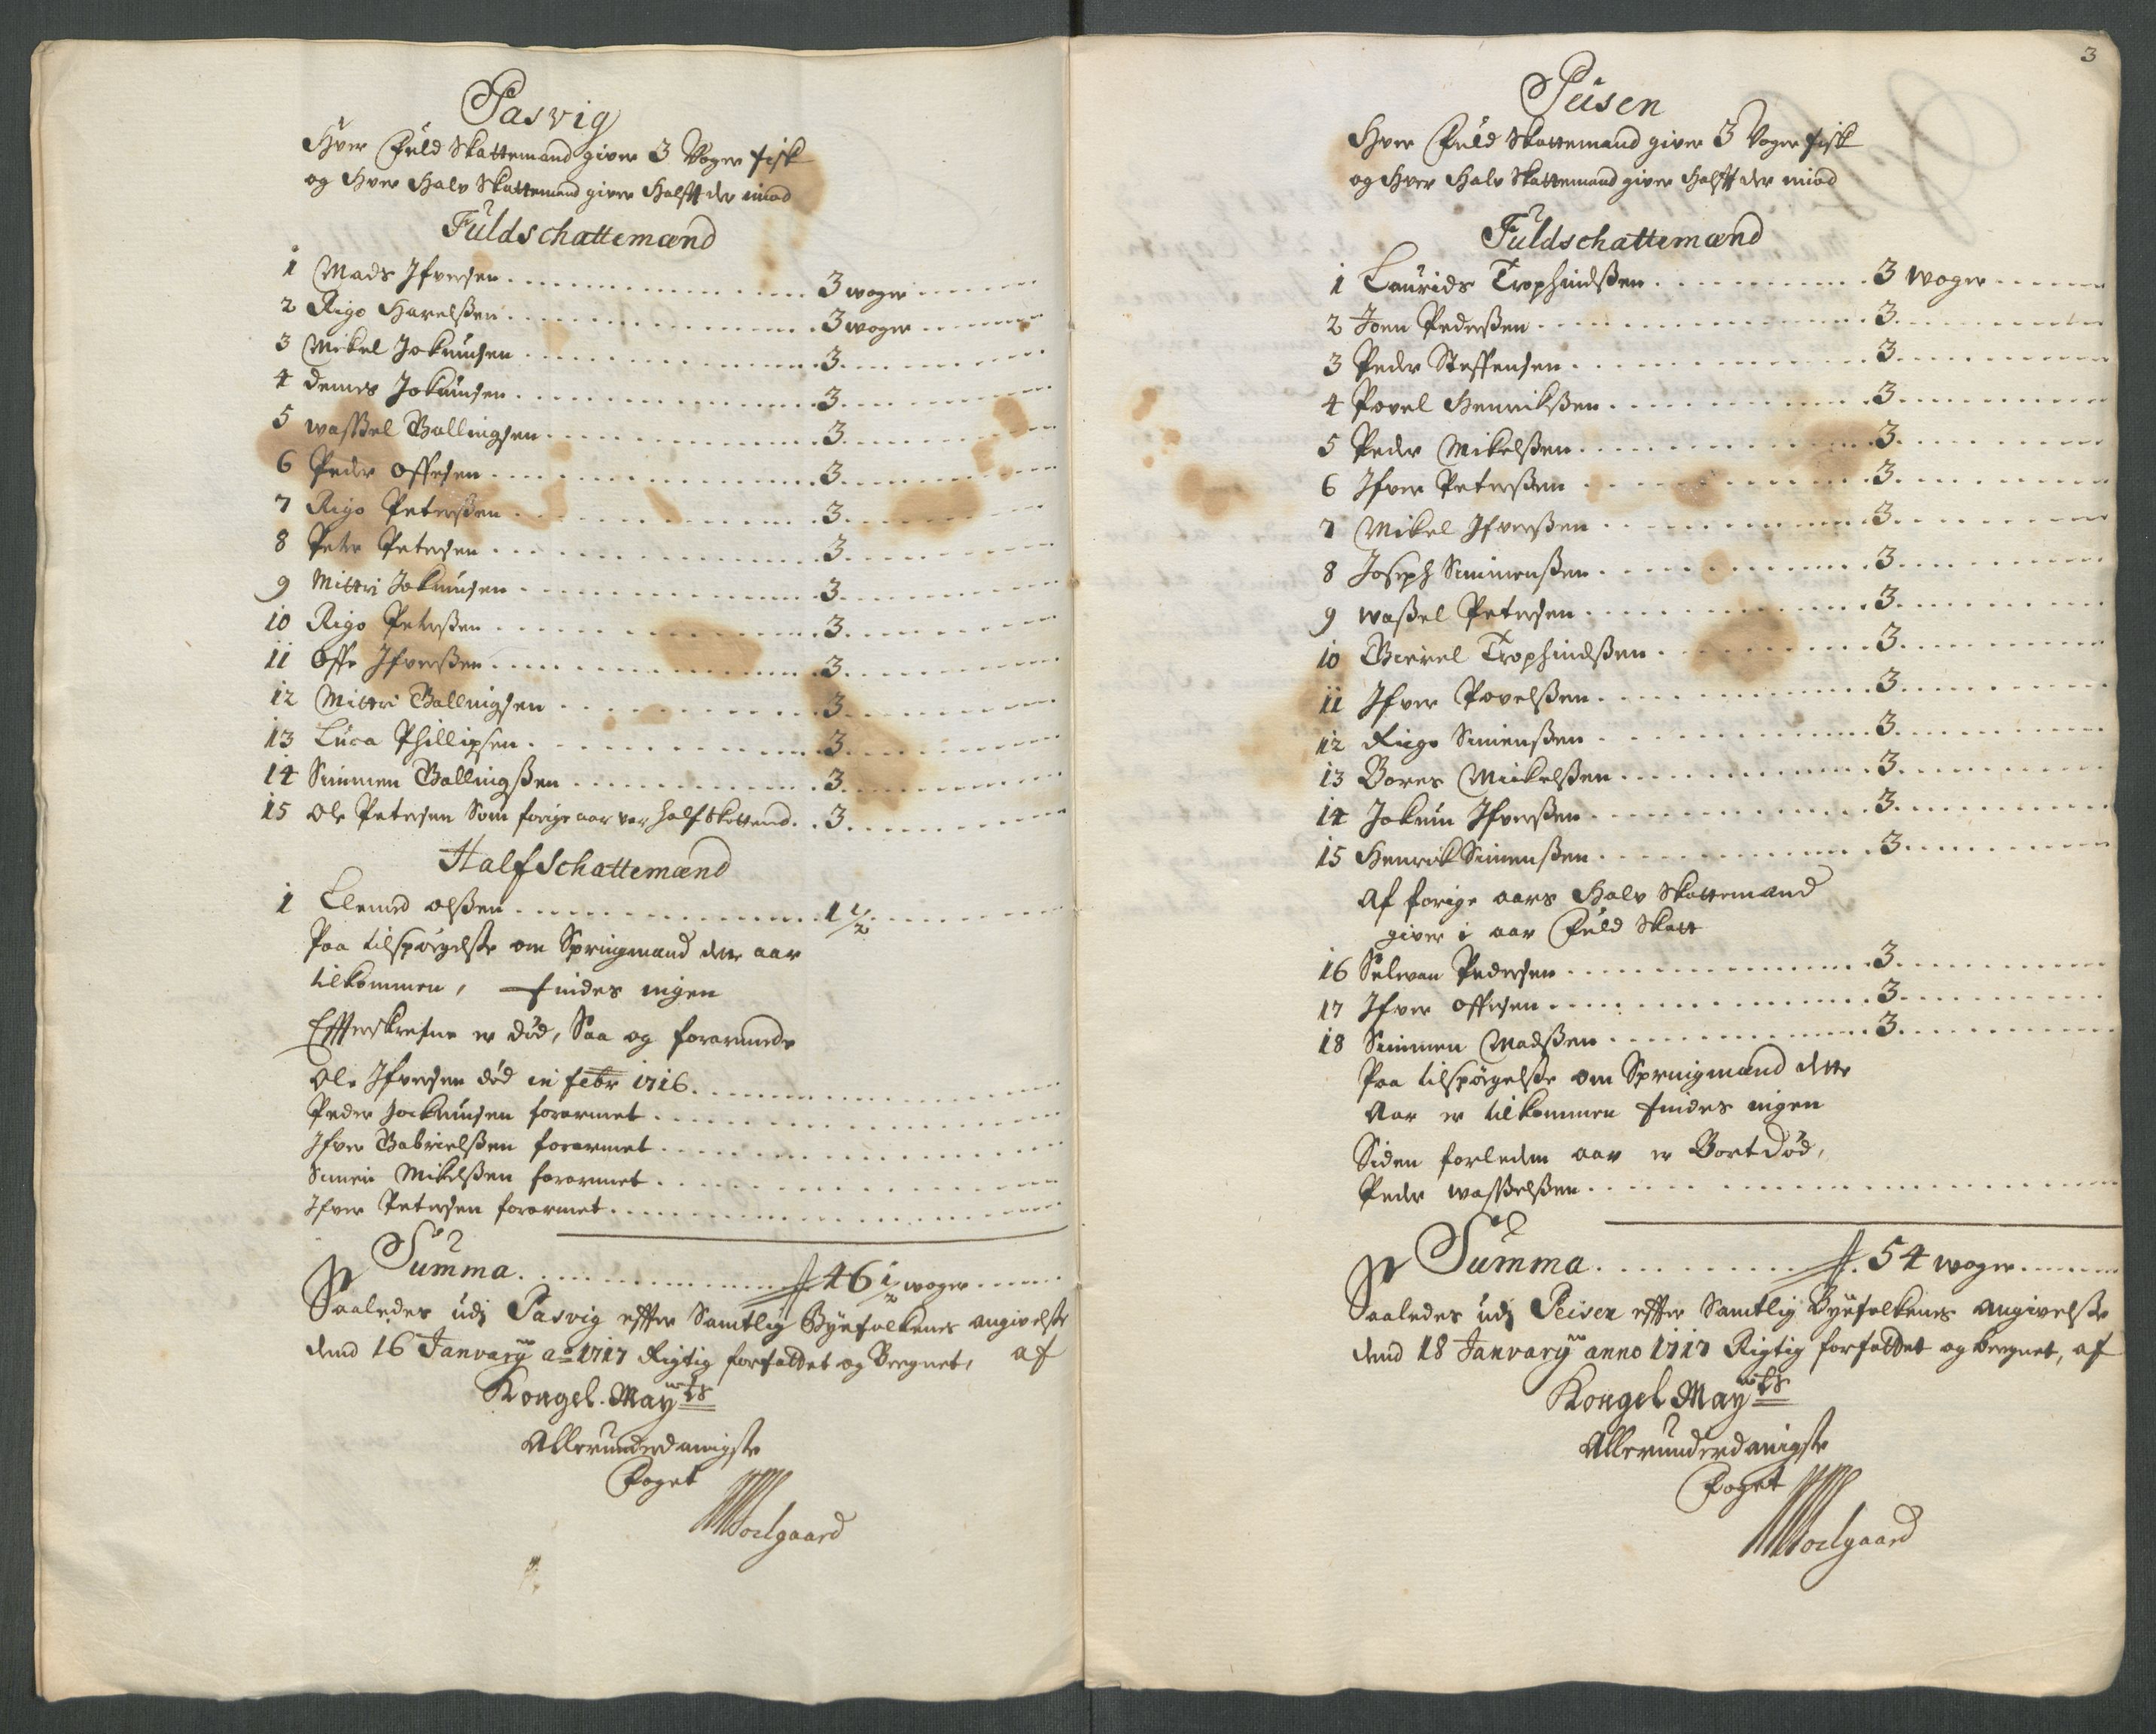 Pasvig
Hver Fuld Skattemand giver 3 Voger fisk
og Hver Halv Skattemand giver Halfft der imod
Fuldschattemænd
1 Mads Ifversen 3 woger
2 Rigo Havelßen 3 woger
3 Mikel Jokumsen 3
4 Demes Jokumsen 3
5 waßßel Ballingsen 3
6 Peder Offesen 3
7 Rigo Peterßen 3
8 Peter Petersen 3
9 Mittri Jokumsen 3
10 Rigo Peterßen 3
11 Offe Ifverßen 3
12 Mittri Ballingsen 3
13 Luca Phillipsen 3
14 Simmen Ballingßen 3
15 Ole Petersen Som forige aar var half Skattend 3
Halfschattemænd
1 Clemed olßen 1 1/2
Paa tilspörgelße om Springmænd dette aar
tilkommen, findes ingen
Effterskrefne er död, Saa og forarmede
Ole Ifversen död in febr 1716
Peder Jockumsen forarmet
Ifver Gabrielßen forarmet
Simen Mikelßen forarmet
Ifver Petersen forarmet
Summa 46 1/2 woger
Saaledes udj Pasvig effter Samtlig Byefolkenes angivelße
dend 16 Januarij ao 1717 Rigtig forfattet og Beregnet, af
Kongel. Mayts
Allerunderdanigste
Foget
Soelgaard
3
Peisen
Hver Fuld Skattemand giver 3 Voger fisk
og Hver Halv Skattemand giver Halfft der imod
Fuldschattemænd
1 Laurids Trophindßen 3 woger
2 Joen Pederßen 3
3 Peder Steffensen 3
4 Povel Henrikßen 3
5 Peder Mikelßen 3
6 Ifver Peterßen 3
7 Mikel Ifverßen 3
8 Joseph Simmenßen 3
9 waßel Petersen 3
10 Gievel Trophindßen 3
11 Ifver Povelßen 3
12 Riego Simenßen 3
13 Bores Mickelßen 3
14 Jokum Ifverßen 3
15 Henrik Simenßen 3
Af forige aars Halv Skattemænd
giver i aar Fuld Skatt
16 Selvan Pedersen 3
17 Ifver Offesen 3
18 Simmen Madßen 3
Paa tilspörgelße om Springmænd dette
Aar er tilkommen findes ingen
Siden forleden aar er Bortdöd,
Peder waßßelßen
Summa 54 woger
Saaledes udj Peisen effter Samtlig Byefolkenes angivelße
dend 18 Januarij anno 1717 Rigtig forfattet og beregnet, af
Kongel Mayts
Allerunderdanigste
Foget
Soelgaard